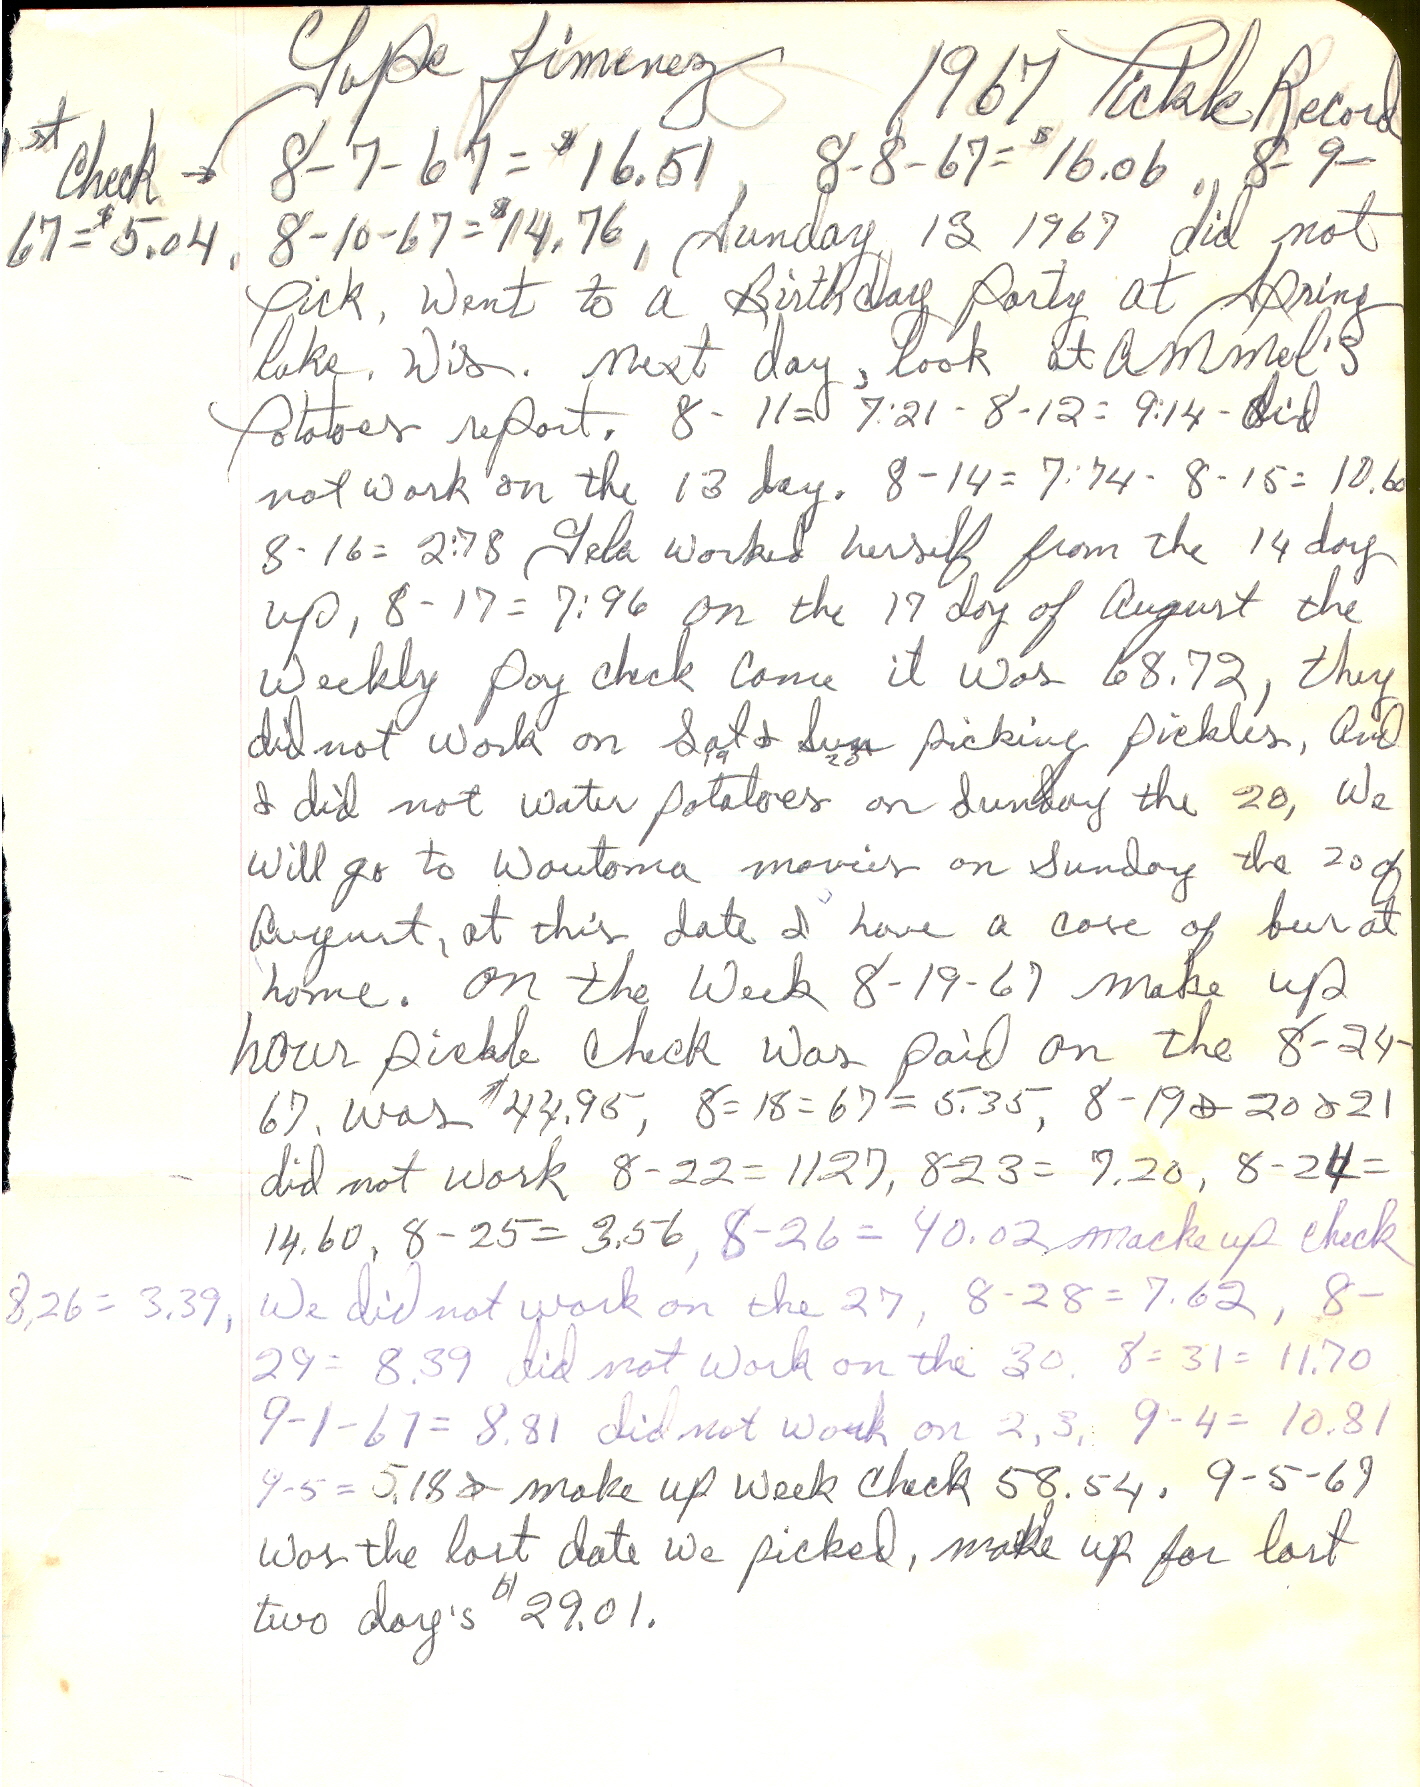 Lupe Jimenez 1967 Pickle Record
1st Check → 8-7-67=$16.51, 8-8-67=$16.06, 8-9-
67=$5.04, 8-10-67=$14.76, Sunday 13 1967 did not
Pick, Went to a Birthday Party at Spring
lake, Wis. Next day, look at Ammel's
Potatoes report. 8-11= 7:21 - 8-12= 9:14 - did
not work on the 13 day. 8-14= 7:74 - 8-15= 10.60
8-16= 2:78 Lela worked herself from the 14 day
up, 8-17= 7:96 on the 17 day of August the
Weekly Pay check Come it was 68.72, they
did not work on Sat & Sun picking Pickles, And
19 20
I did not water Potatoes on Sunday the 20, We
will go to Wautoma movies on Sunday the 20 of
August, at this date I have a case of beer at
home. On the Week 8-19-67 make up
hour pickle Check was paid on the 8-24-
67. was $44.95, 8=18=67= 5.35, 8-19 & 20 & 21
did not work 8-22= 1127, 823= 7.20, 8-24=
14.60, 8-25= 3.56, 8-26= 40.02 macke up Check
8,26= 3.39, We did not work on the 27, 8-28=7.62, 8-
29= 8.39 did not work on the 30. 8=31= 11.70
9-1-67= 8.81 did not work on 2,3, 9-4= 10.81
9-5= 5.18 & make up week Check 58.54. 9-5-67
was the last date we picked, make up for last
two day's $29.01.